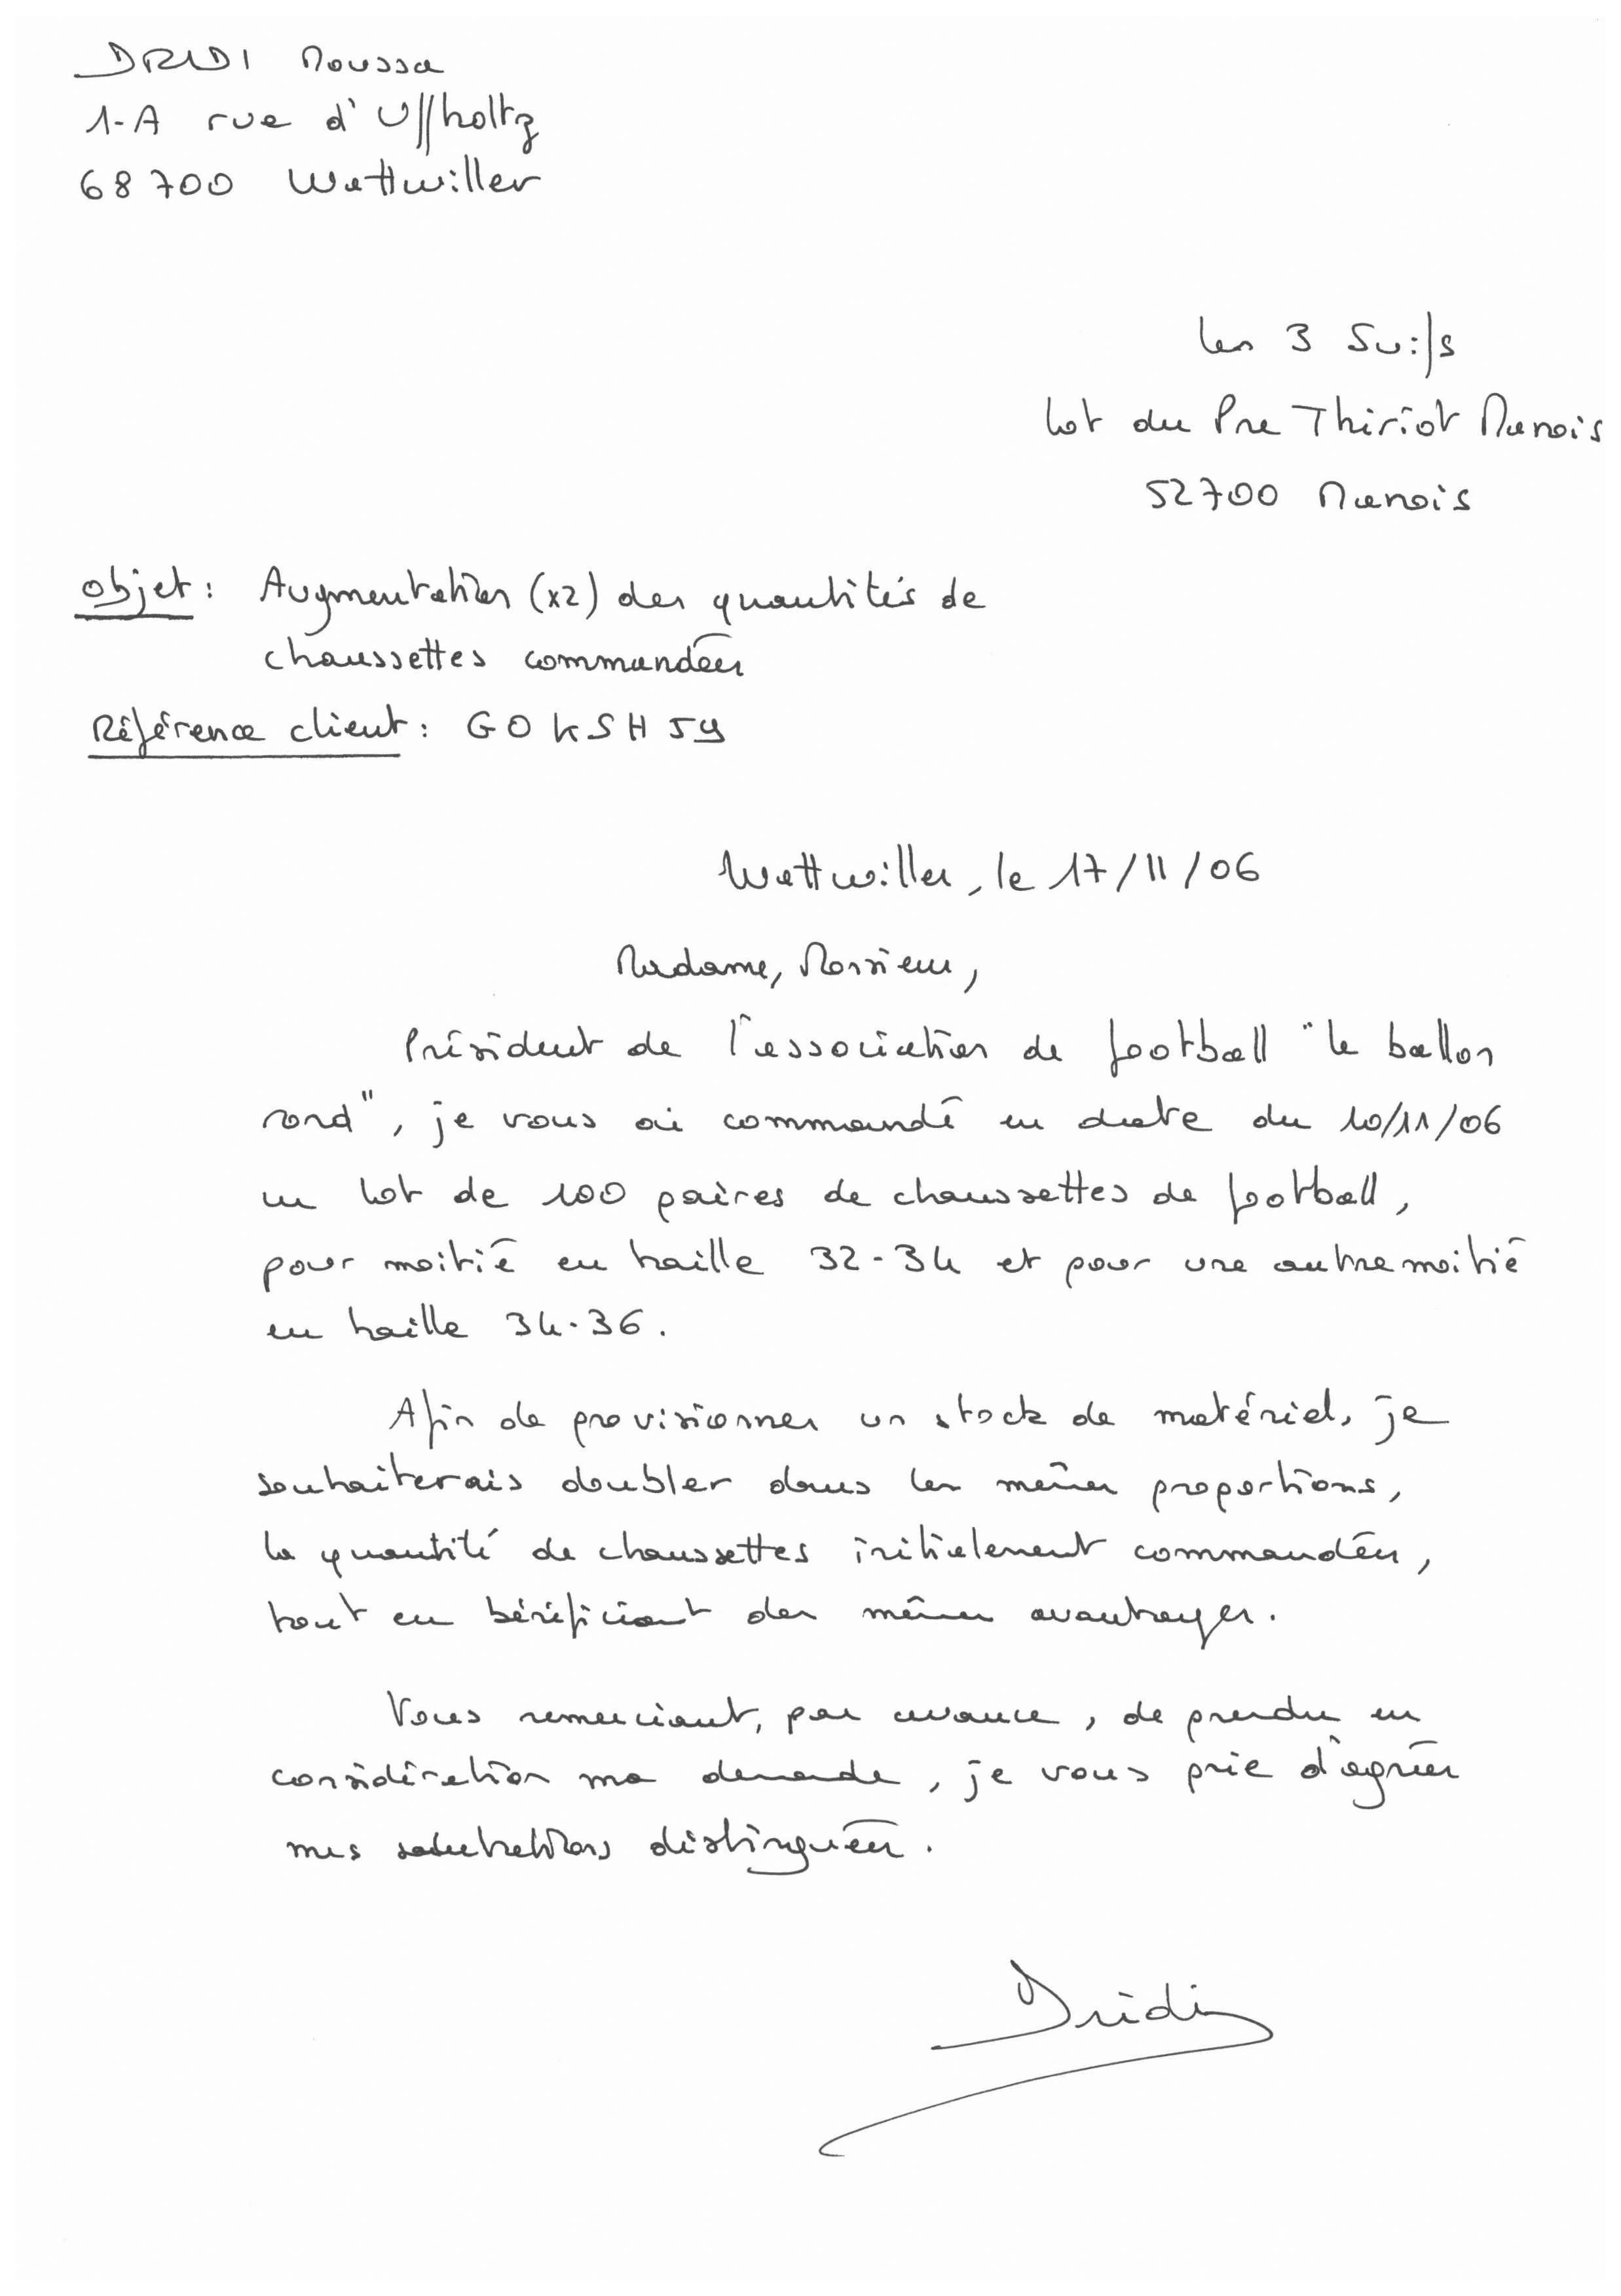 DRIDI Moussa
1-A rue d'Uffholtz
68700 Wattwiller
Les 3 Suifs
Lot du Pre Thiriot Manois
52700 Manois
Objet : Augmentation (x2) des quantités de
chaussettes commandées
Référence client : GOKSH59
Wattwiller, le 17/11/06
Madame, Monsieur,
Président de l'association de football "le ballon
rond", je vous ai commandé en date du 10/11/06
un lot de 100 paires de chaussettes de football,
pour moitié en taille 32-34 et pour une autre moitié
en taille 34-36.
Afin de provisionner un stock de matériel, je
souhaiterais doubler dans les mêmes proportions,
la quantité de chaussettes initialement commandées,
tout en bénéficiant des mêmes avantages.
Vous remerciant, par avance, de prendre en
considération ma demande, je vous prie d'agréer
mes salutations distinguées.
Dridi